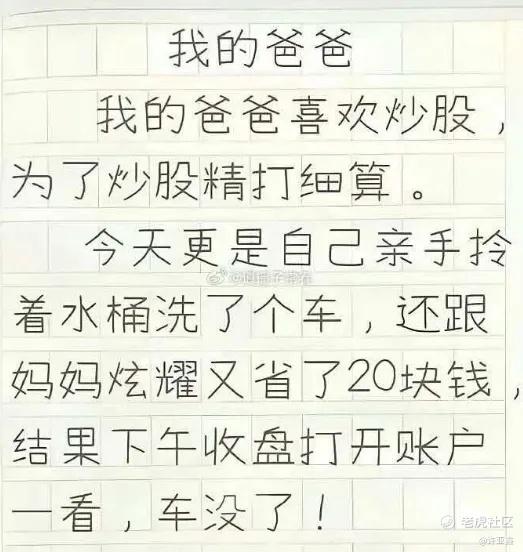 我的爸爸
我的爸爸喜欢炒股，
为了炒股精打细算。
今天更是自己亲手拎
着水桶洗了个车，还跟
妈妈炫耀又省了20块钱，
结果下午收盘打开账户
一看，车没了！
老虎社区